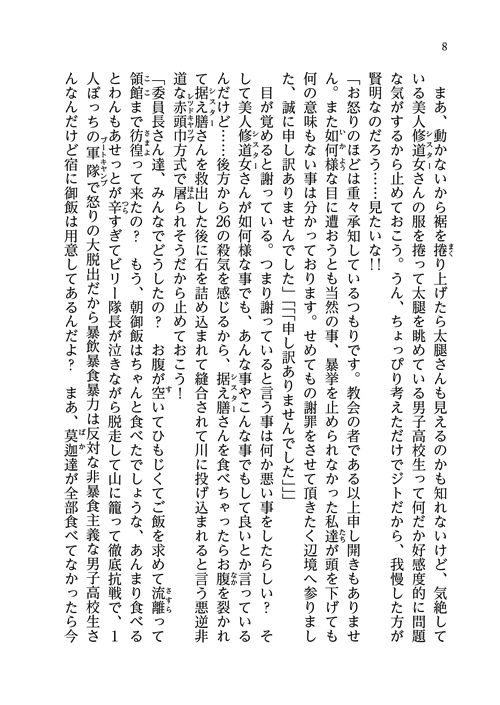 8
まあ、動かないから裾を捲り上げたら太腿さんも見えるのかも知れないけど、気絶して
いる美人修道女さんの服を捲って太腿を眺めている男子高校生って何だか好感度的に問題
な気がするから止めておこう。うん、ちょっぴり考えただけでジトだから、我慢した方が
賢明なのだろう……見たいな!!
「お怒りのほどは重々承知しているつもりです。教会の者である以上申し開きもありませ
ん。また如何様な目に遭おうとも当然の事、暴挙を止められなかった私達が頭を下げても
何の意味もない事は分かっております。せめてもの謝罪をさせて頂きたく辺境へ参りまし
た、誠に申し訳ありませんでした」「「「申し訳ありませんでした」」」
目が覚めると謝っている。つまり謝っていると言う事は何か悪い事をしたらしい？　そ
して美人修道女さんが如何様な事でも、あんな事やこんな事でもして良いとか言っている
んだけど……後方から26の殺気を感じるから、据え膳さんを食べちゃったらお腹を裂かれ
て据え膳さんを救出した後に石を詰め込まれて縫合されて川に投げ込まれると言う悪逆非
道な赤頭巾方式で屠られそうだから止めておこう！
「委員長さん達、みんなでどうしたの？　お腹が空いてひもじくてご飯を求めて流離って
領館まで彷徨って来たの？　もう、朝御飯はちゃんと食べたでしょうな、あんまり食べる
とわんもあせっとが辛すぎてビリー隊長が泣きながら脱走して山に籠って徹底抗戦で、1
人ぼっちの軍隊で怒りの大脱出だから暴飲暴食暴力は反対な非暴食主義な男子高校生さ
んなんだけど宿に御飯は用意してあるんだよ？　まあ、莫迦達が全部食べてなかったら今